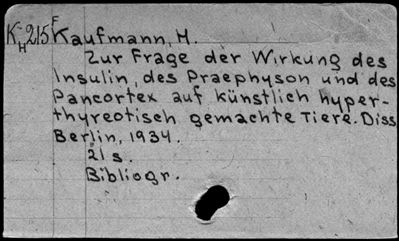 K_H 215 F Kaufmann, H.
Zur Frage der Wirkung des
Insulin, des Praephyson und des
Pancortex auf künstlich hyper-
thyreotisch gemachte Tiere. Diss.
Berlin, 1934.
21 s.
Bibliogr.